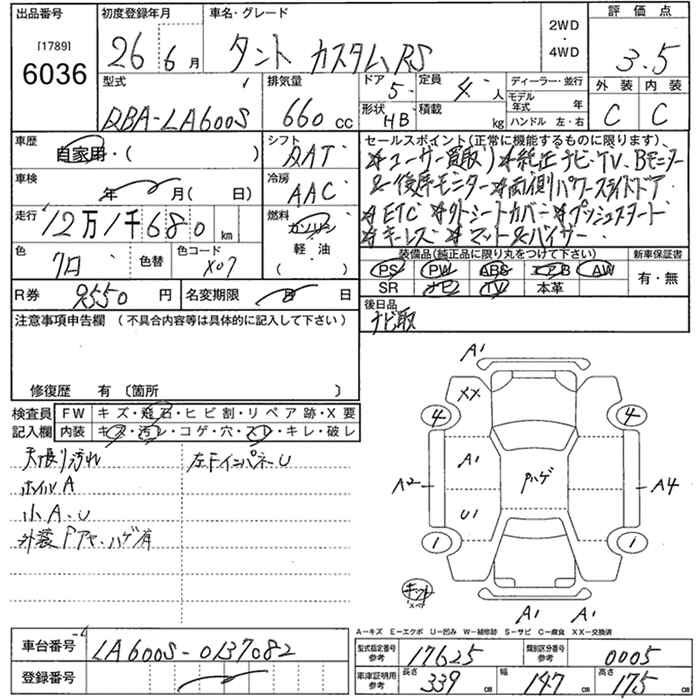 出品番号 初度登録年月 車名・グレード 評価点
[1789] 2WD
6036 26年 6月 タント カスタム RS ・ 4WD 3.5
型式 排気量 ドア 5 定員 4人 ディーラー・並行 外装 内装
DBA-LA600S 660 cc 形状 HB 積載 kg モデル年式 年 C C
ハンドル 左・右
車歴 シフト セールスポイント(正常に機能するものに限ります)
自家用・( ) DAT ※ユーザー買取り ※純正ナビ・TV、Bモニター
車検 冷房 &後席モニター ※両側パワースライドドア
年 月( 日) AAC ※ETC ※シートカバー ※プッシュスタート
走行 燃料 ※キーレス ※マット&バイザー
12万1千680 km ガソリン
色 色替 色コード 軽・油 装備品(純正品に限り丸をつけて下さい) 新車保証書
クロ X07 ( ) PS PW ABS エアB AW 有・無
SR ナビ TV 本革
R券 9550 円 名変期限 月 日 後日品
注意事項申告欄 (不具合内容等は具体的に記入して下さい) ナビ取
修復歴 有〔箇所 〕
検査員 FW キズ・飛石・ヒビ割・リペア跡・X要
記入欄 内装 キズ・汚レ・コゲ・穴・スレ・キレ・破レ
天張り汚れ 左FインパネU
ホイルA
小A、U
外装Pアセ・ハゲ有
A1
XX
4 4
A1
Pハゲ
A2 A4
U1
1 1
キット
A1 A1
A-キズ E-エクボ U-凹み W-補修跡 S-サビ C-腐食 XX-交換済
車台番号 LA600S-0137082 型式指定番号 参考 17625 類別区分番号 参考 0005
登録番号 車庫証明用 参考 長さ 339 cm 幅 147 cm 高さ 175 cm